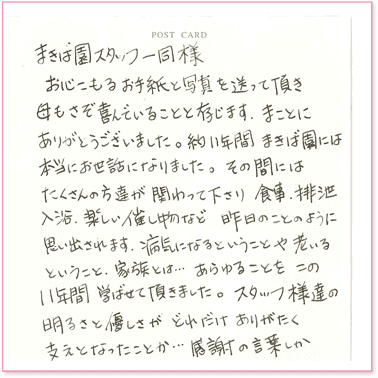 POST CARD
まきば園スタッフ一同様
お心こもるお手紙と写真を送って頂き
母もさぞ喜んでいることと存じます. まことに
ありがとうございました。約11年間 まきば園には
本当にお世話になりました。その間には
たくさんの方達が 関わって下さり 食事. 排泄
入浴. 楽しい催し物など 昨日のことのように
思い出されます. 病気になるということや 老いる
ということ. 家族とは… あらゆることを この
11年間 学ばせて頂きました。スタッフ様達の
明るさと優しさが どれだけ ありがたく
支えとなったことか… 感謝の言葉しか